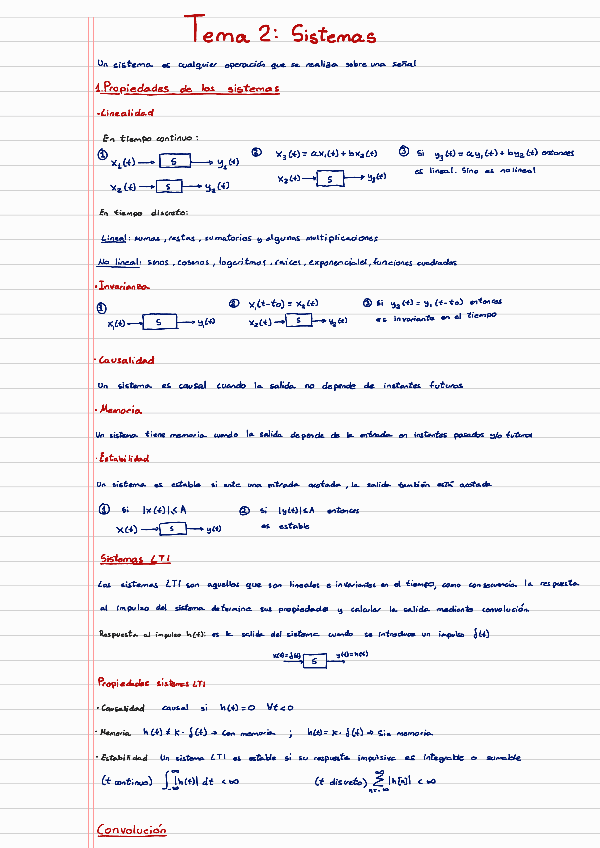 Tema 2: Sistemas
Un sistema es cualquier operación que se realiza sobre una señal
1.Propiedades de los sistemas
·Linealidad
En tiempo continuo:
① x₁(t) → S → y₁(t) ② x₃(t) = ax₁(t) + bx₂(t) ③ Si y₃(t) = ay₁(t) + by₂(t) entonces
x₂(t) → S → y₂(t) x₃(t) → S → y₃(t) es lineal. Sino es no lineal
En tiempo discreto:
Lineal: sumas, restas, sumatorios y algunas multiplicaciones
No lineal: senos, cosenos, logaritmos, raíces, exponenciales, funciones cuadradas
·Invarianza
① ② x₁(t-t0) = x₂(t) ③ Si y₂(t) = y₁(t-t0) entonces
x₁(t) → S → y₁(t) x₂(t) → S → y₂(t) es invariante en el tiempo
·Causalidad
Un sistema es causal cuando la salida no depende de instantes futuros
·Memoria
Un sistema tiene memoria cuando la salida depende de la entrada en instantes pasados y/o futuros
·Estabilidad
Un sistema es estable si ante una entrada acotada, la salida también está acotada
① Si |x(t)| ≤ A ② Si |y(t)| ≤ A entonces
x(t) → S → y(t) es estable
Sistemas LTI
Los sistemas LTI son aquellos que son lineales e invariantes en el tiempo, como consecuencia la respuesta
al impulso del sistema determina sus propiedades y calcular la salida mediante convolución.
Respuesta al impulso h(t): es la salida del sistema cuando se introduce un impulso δ(t)
x(t)=δ(t) → S → y(t)=h(t)
Propiedades sistemas LTI
·Causalidad causal si h(t)=0 ∀t<0
·Memoria h(t) ≠ K·δ(t) → Con memoria ; h(t)= K·δ(t) → Sin memoria
·Estabilidad Un sistema LTI es estable si su respuesta impulsiva es integrable o sumable
(t continuo) ∫_{-∞}^{∞} |h(t)| dt < ∞ (t discreto) ∑_{n=-∞}^{∞} |h[n]| < ∞
Convolución